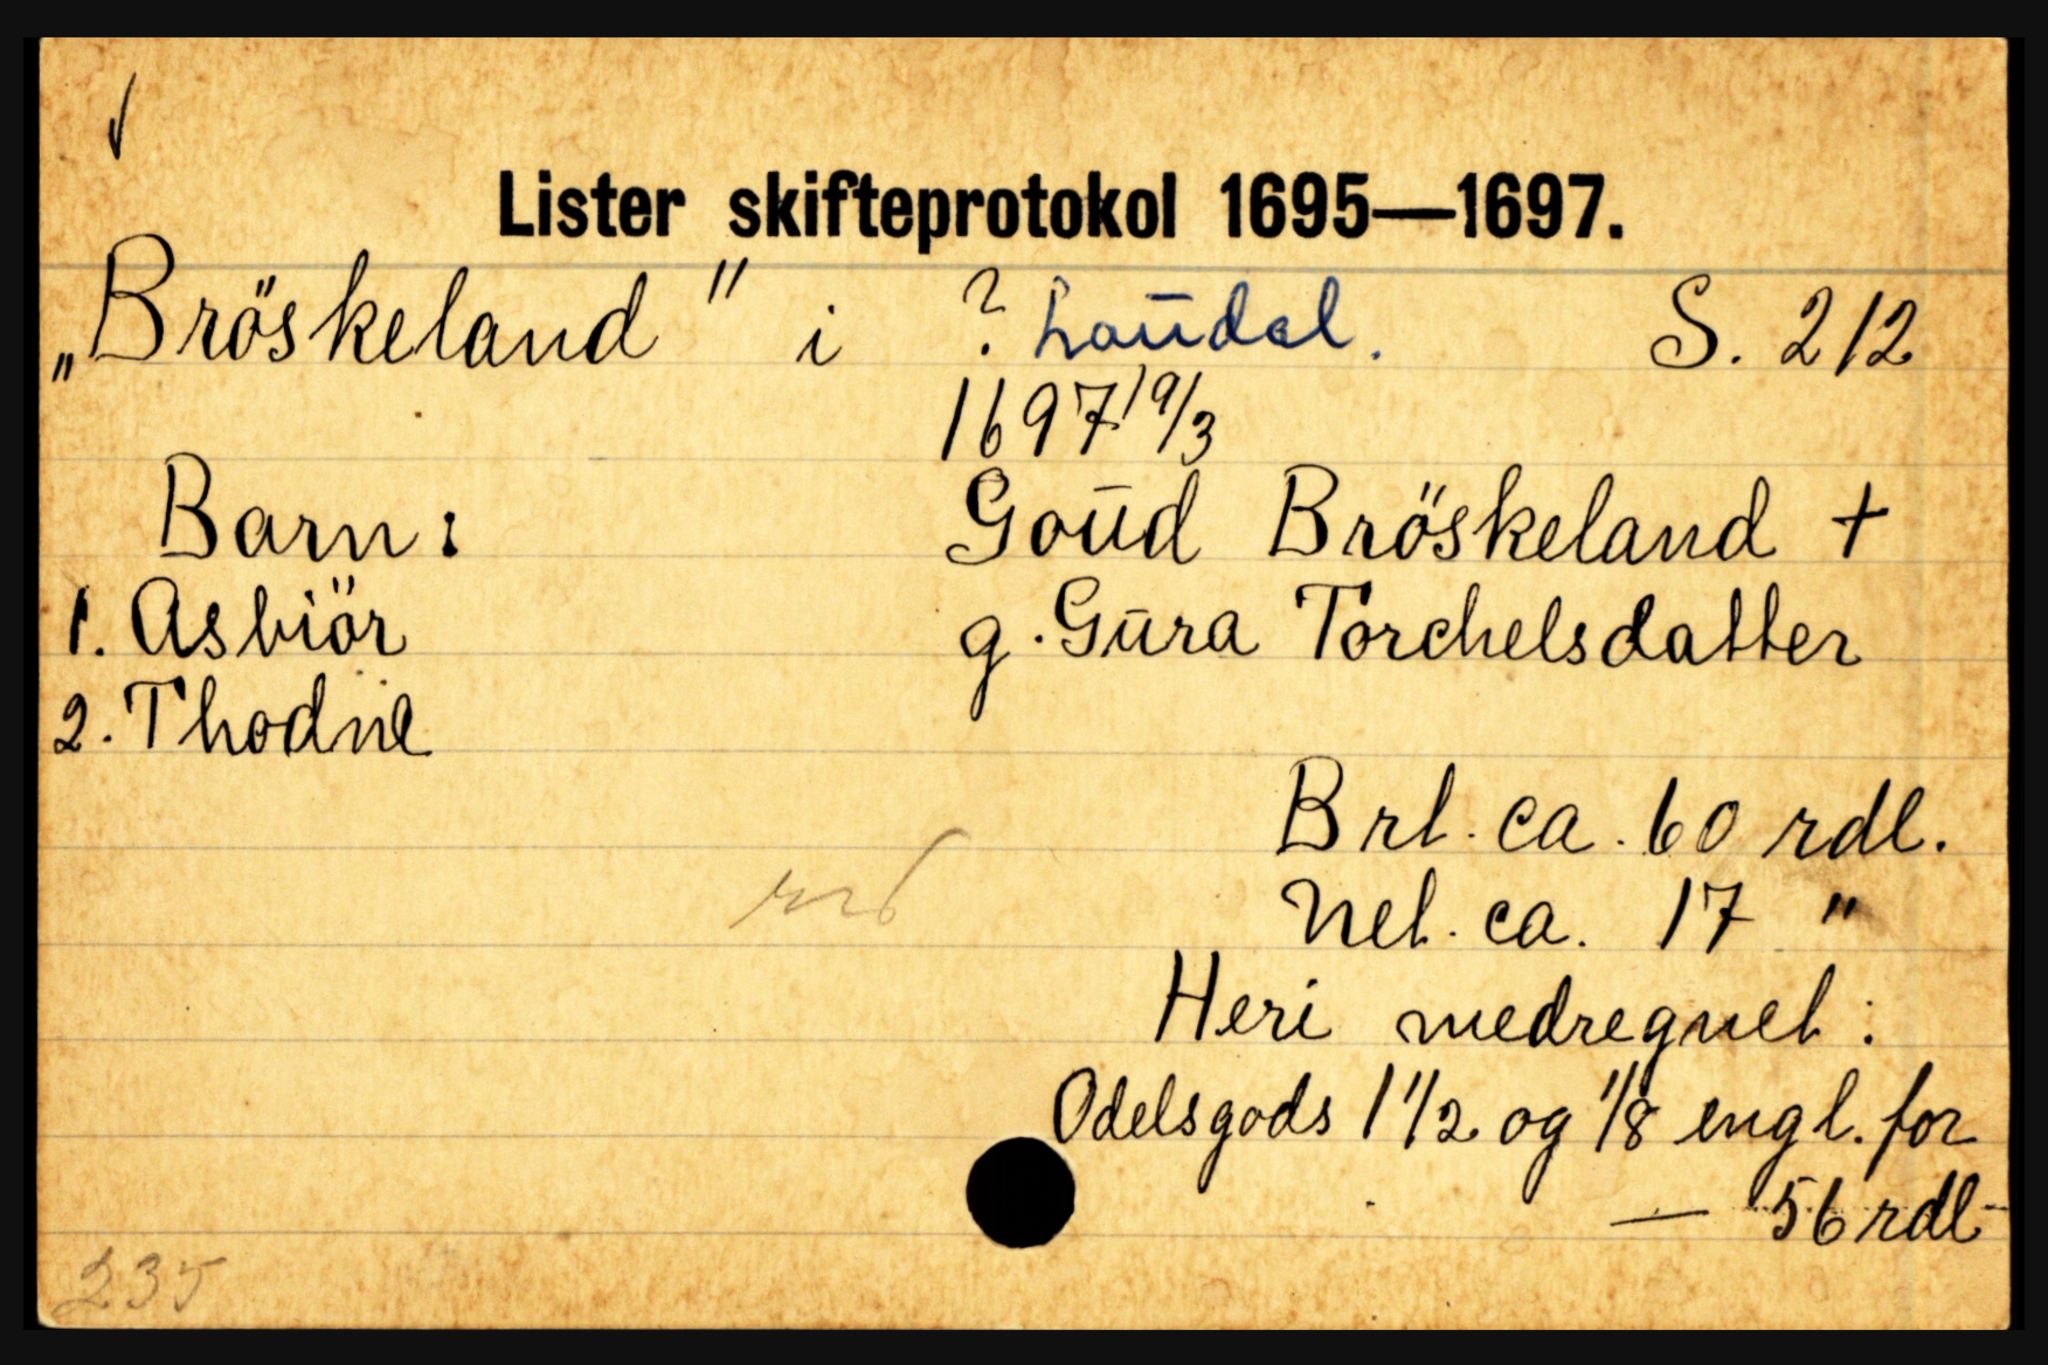 Lister skifteprotokol 1695—1697.
„Bröskeland" i ? Laudal. S. 212
1697 19/3
Barn:
1. Asbiör
2. Thodne
Goud Bröskeland +
g. Gura Torchelsdatter
Brt. ca. 60 rdl.
Net. ca. 17 "
Heri medregnet:
Odelsgods 1 1/2 og 1/8 engl. for
— 56 rdl
235